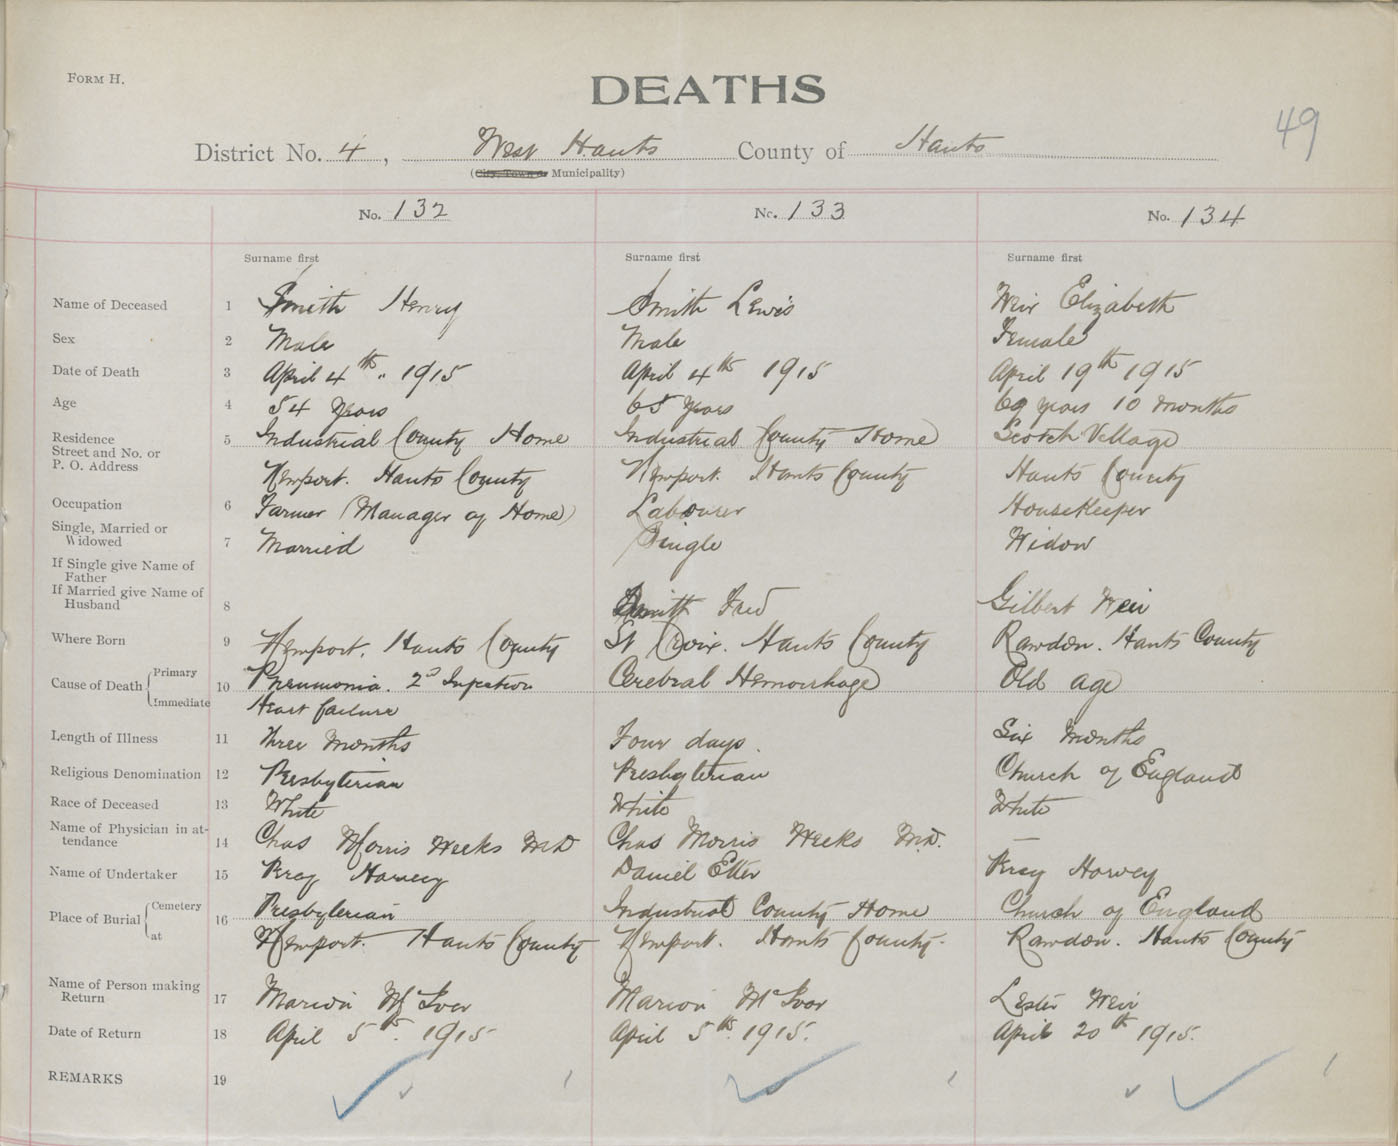 FORM H.
DEATHS
49
District No. 4, West Hants County of Hants
(City, Town or Municipality)
No. 132 No. 133 No. 134
Surname first Surname first Surname first
Name of Deceased 1 Smith Henry Smith Lewis Weir Elizabeth
Sex 2 Male Male Female
Date of Death 3 April 4th. 1915 April 4th 1915 April 19th 1915
Age 4 54 Years 65 Years 69 years 10 months
Residence 5 Industrial County Home Industrial County Home Scotch Village
Street and No. or
P. O. Address Newport. Hants County Newport. Hants County Hants County
Occupation 6 Farmer (Manager of Home) Labourer Housekeeper
Single, Married or
Widowed 7 Married Single Widow
If Single give Name of
Father
If Married give Name of
Husband 8 Smith Fred Gilbert Weir
Where Born 9 Newport. Hants County St Croix. Hants County Rawdon. Hants County
Cause of Death Primary 10 Pneumonia. 2nd Infection Cerebral Hemorrhage Old age
Immediate Heart failure
Length of Illness 11 Three Months Four days. Six months
Religious Denomination 12 Presbyterian Presbyterian Church of England
Race of Deceased 13 White White White
Name of Physician in at-
tendance 14 Chas Morris Weeks MD Chas Morris Weeks M.D. —
Name of Undertaker 15 Percy Harvey Daniel Etter Percy Harvey
Place of Burial Cemetery 16 Presbyterian Industrial County Home Church of England
at Newport. Hants County Newport. Hants County. Rawdon. Hants County
Name of Person making
Return 17 Marion McIvor Marion McIvor Lester Weir
Date of Return 18 April 5th. 1915 April 5th. 1915. April 20th 1915.
REMARKS 19